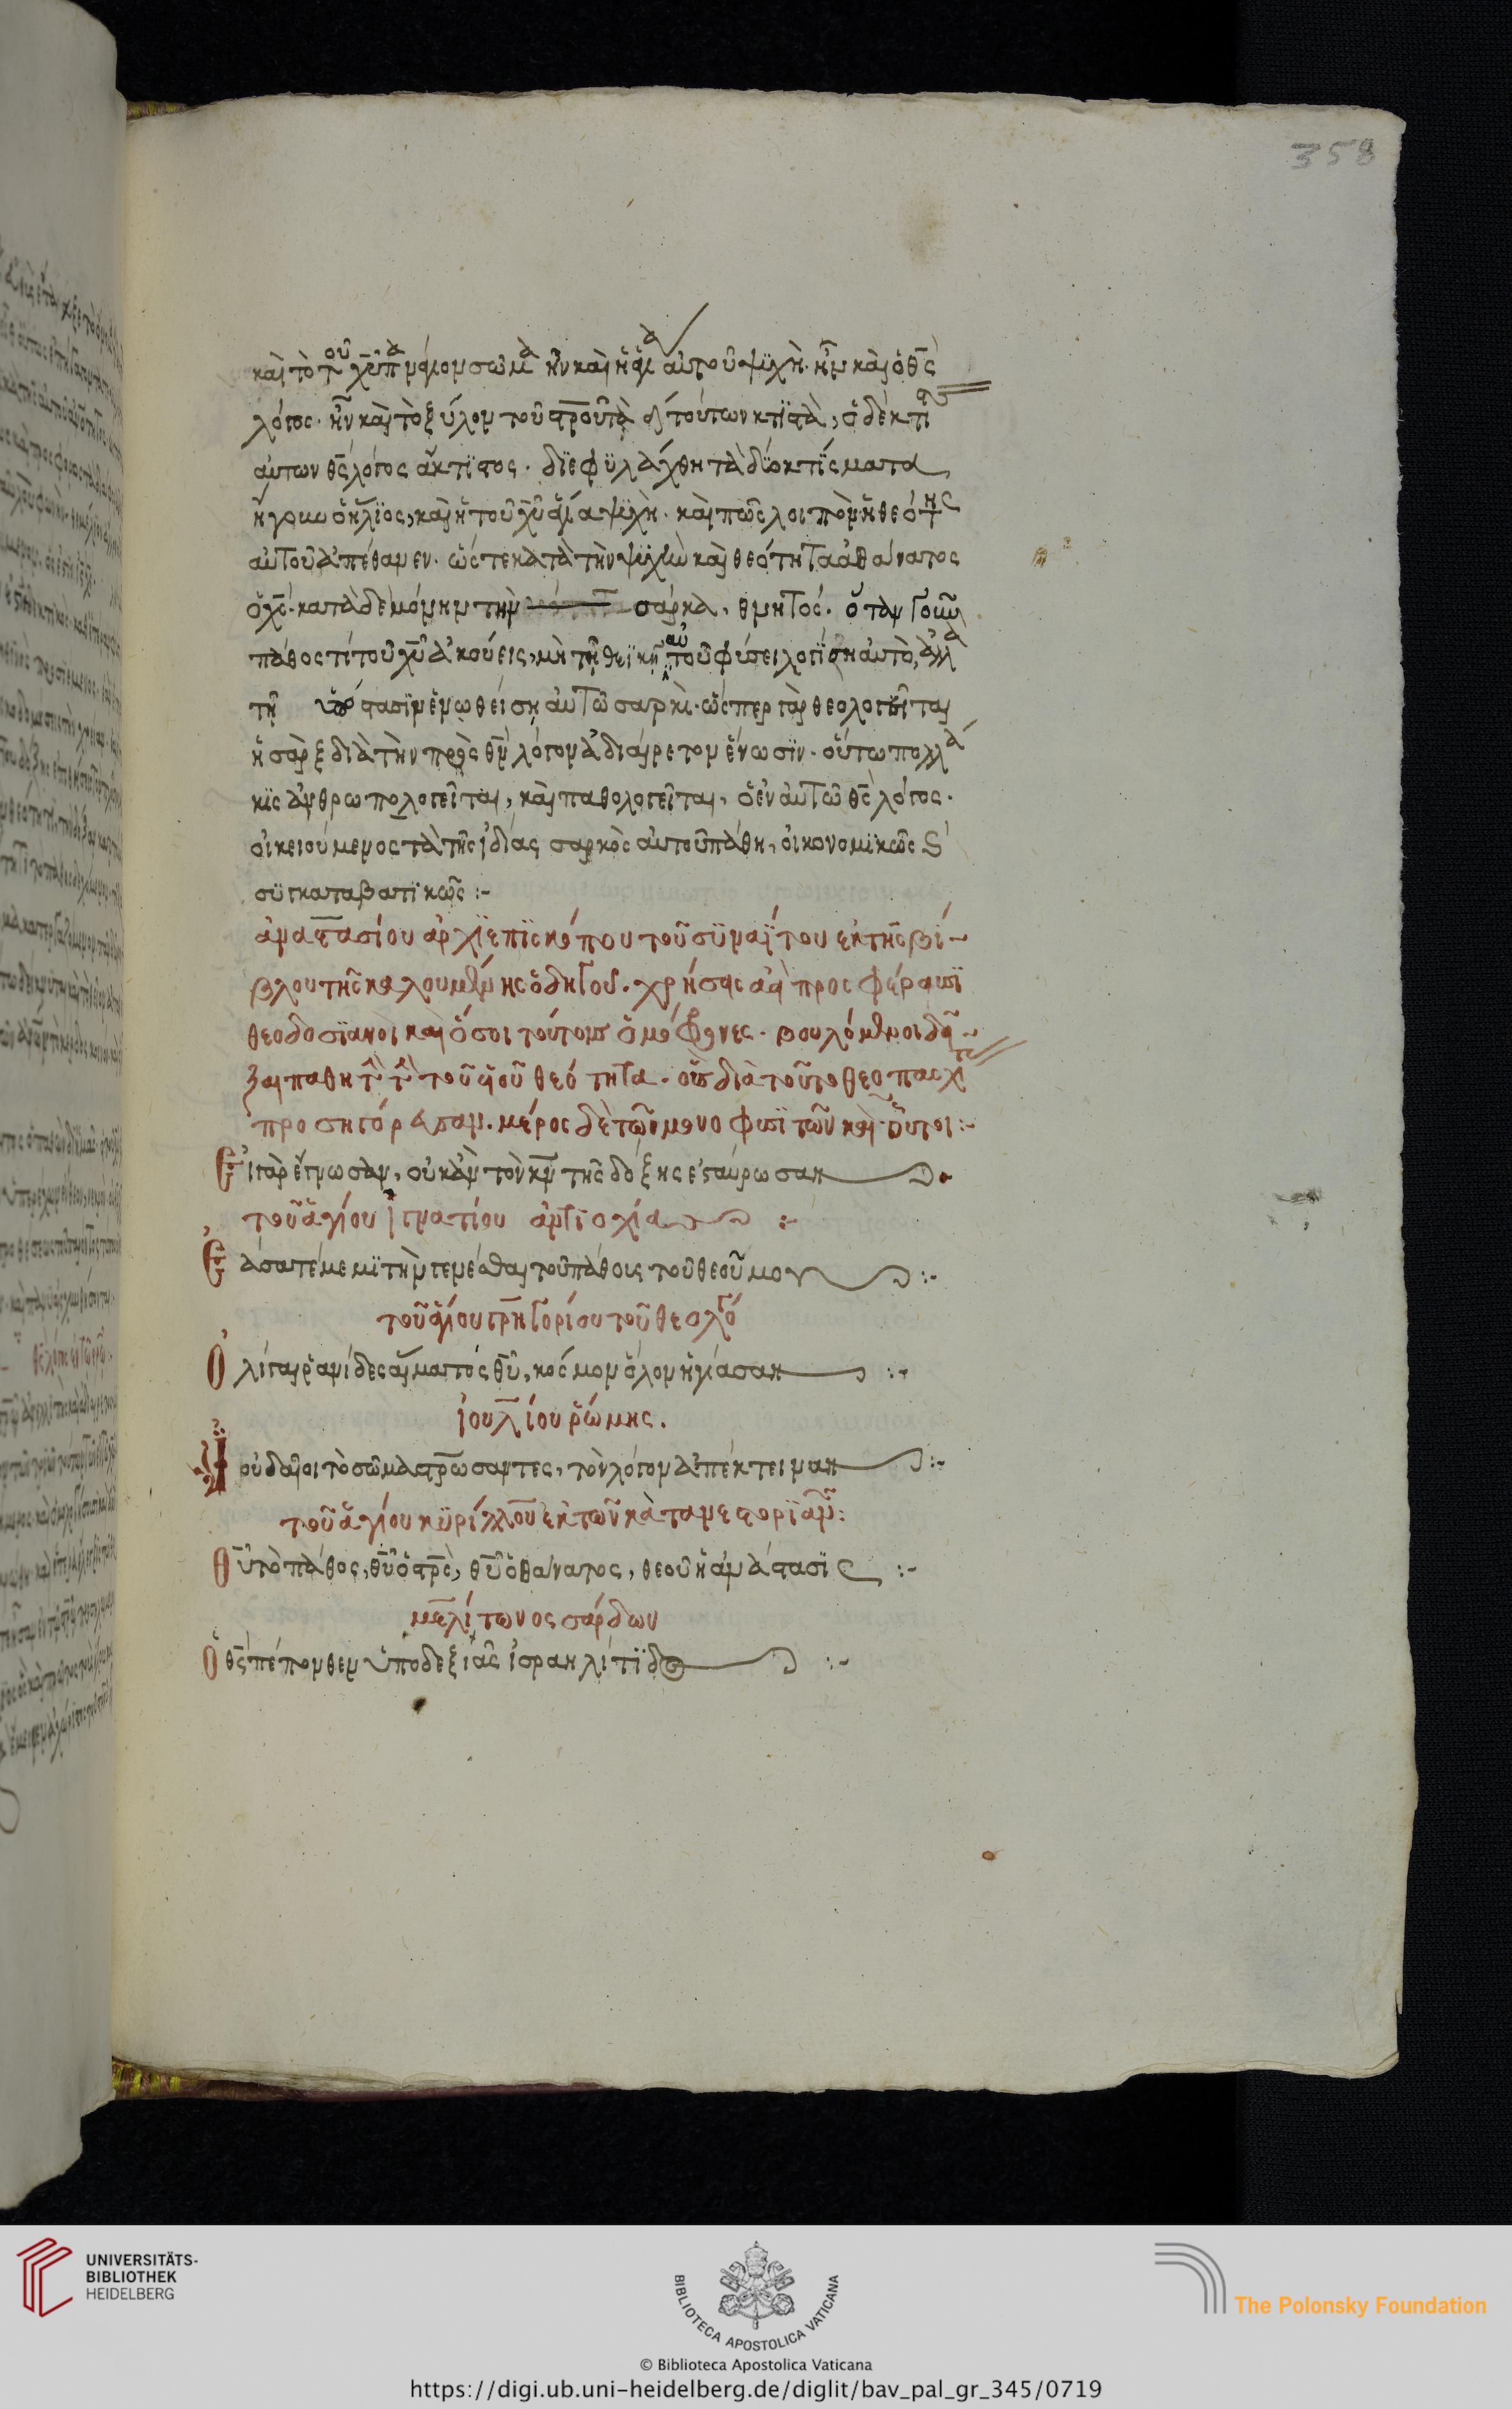 358
καὶ τὸ τοῦ χυ πανάγιον σῶμα ἦν καὶ ἡ ἁγία αὐτοῦ ψϋχὴ· ἦν καὶ ὁ θς
λόγος· ἦν καὶ τὸ ξύλον τοῦ στρου τὰ τούτων κτϊστὰ, ὁ δὲ κτι
αὐτων θς λόγος ἄκτϊστος· διεφϋλάχθη τὰ δύο κτΐσματα
ἤγουν ὁ ἥλϊος, καὶ ἡ τοῦ χυ ἁγία ψϋχὴ· καὶ πῶς λοιπὸν ἡ θεότης
αὐτοῦ ἀπέθανεν· ὥστε κατὰ τὴν ψϋχὴν καὶ θεότητα ἀθάνατος
ὁ χς· κατὰ δὲ μόνην τὴν σάρκα, θνητός· ὅταν γοῦν
πάθος τὶ τοῦ χυ ἀκούεις, μὴ τῆ θεϊκῆ αὐτοῦ φύσει λογΐση αὐτὸ, ἀλλὰ
τῆ ὑποστασϊν ἑνωθείση αὐτῶ σαρκὶ· ὥσπερ γὰρ θεολογεῖται
ἡ σὰρξ διὰ τὴν πρὸς θν λόγον ἀδιαίρετον ἕνωσϊν· οὕτω πολλά
κϊς ἀνθρωπολογεῖται, καὶ παθολογεῖται, ὁ ἐν αὐτῶ θς λόγος·
οἰκειούμενος τὰ τῆς ἰδίας σαρκὸς αὐτοῦ πάθη, οἰκονομϊκῶς ϗ
σϋγκαταβατϊκῶς :-
ἀναστασίου ἀρχϊεπϊσκόπου τοῦ σϋναΐτου ἐκ τῆς βί-
βλου τῆς καλουμένης ὁδηγοῦ. χρήσεις ἃς προσφέρουσϊ
θεοδοσϊανοὶ καὶ ὅσοι τούτοις ὁμόφρονες· βουλόμενοι δεῖ-
ξαι παθητὴν τὴν τοῦ υἱοῦ θεότητα. οὓς διὰ τοῦτο θεοπασχί
προσηγόρευσαν. μέρος δὲ τῶν μονοφϋσϊτῶν καὶ οὗτοι :-
Εἰ γὰρ ἔγνωσαν, οὐκ ἂν τὸν κν τῆς δόξης ἐσταύρωσαν
τοῦ ἁγίου ἰγνατίου ἀντϊοχίας :-
Ἐάσατέ με μϊτὴν γενέσθαι τοῦ πάθους τοῦ θεοῦ μου :-
τοῦ ἁγίου γρηγορίου τοῦ θεολόγου
Ὀλίγαι ῥανίδες αἵματος θυ, κόσμον ὅλον ἡγίασαν :-
ἰουλίου ῥώμης.
Ἰουδαῖοι τὸ σῶμα στρώσαντες, τὸν λόγον ἀπέκτειναν :-
τοῦ ἁγίου κϋρίλλου ἐκ τῶν κατὰ νεστορϊανῶν :
Θυ τὸ πάθος, θυ ὁ στρς, θυ ὁ θάνατος, θεοῦ ἡ ἀνάστασϊς :-
μελίτωνος σάρδων
Ὁ θς πέπονθεν ὑπὸ δεξιᾶς ἰσραηλίτϊδος :-
UNIVERSITÄTS-
BIBLIOTHEK
HEIDELBERG
BIBLIOTECA APOSTOLICA VATICANA
The Polonsky Foundation
© Biblioteca Apostolica Vaticana
https://digi.ub.uni-heidelberg.de/diglit/bav_pal_gr_345/0719